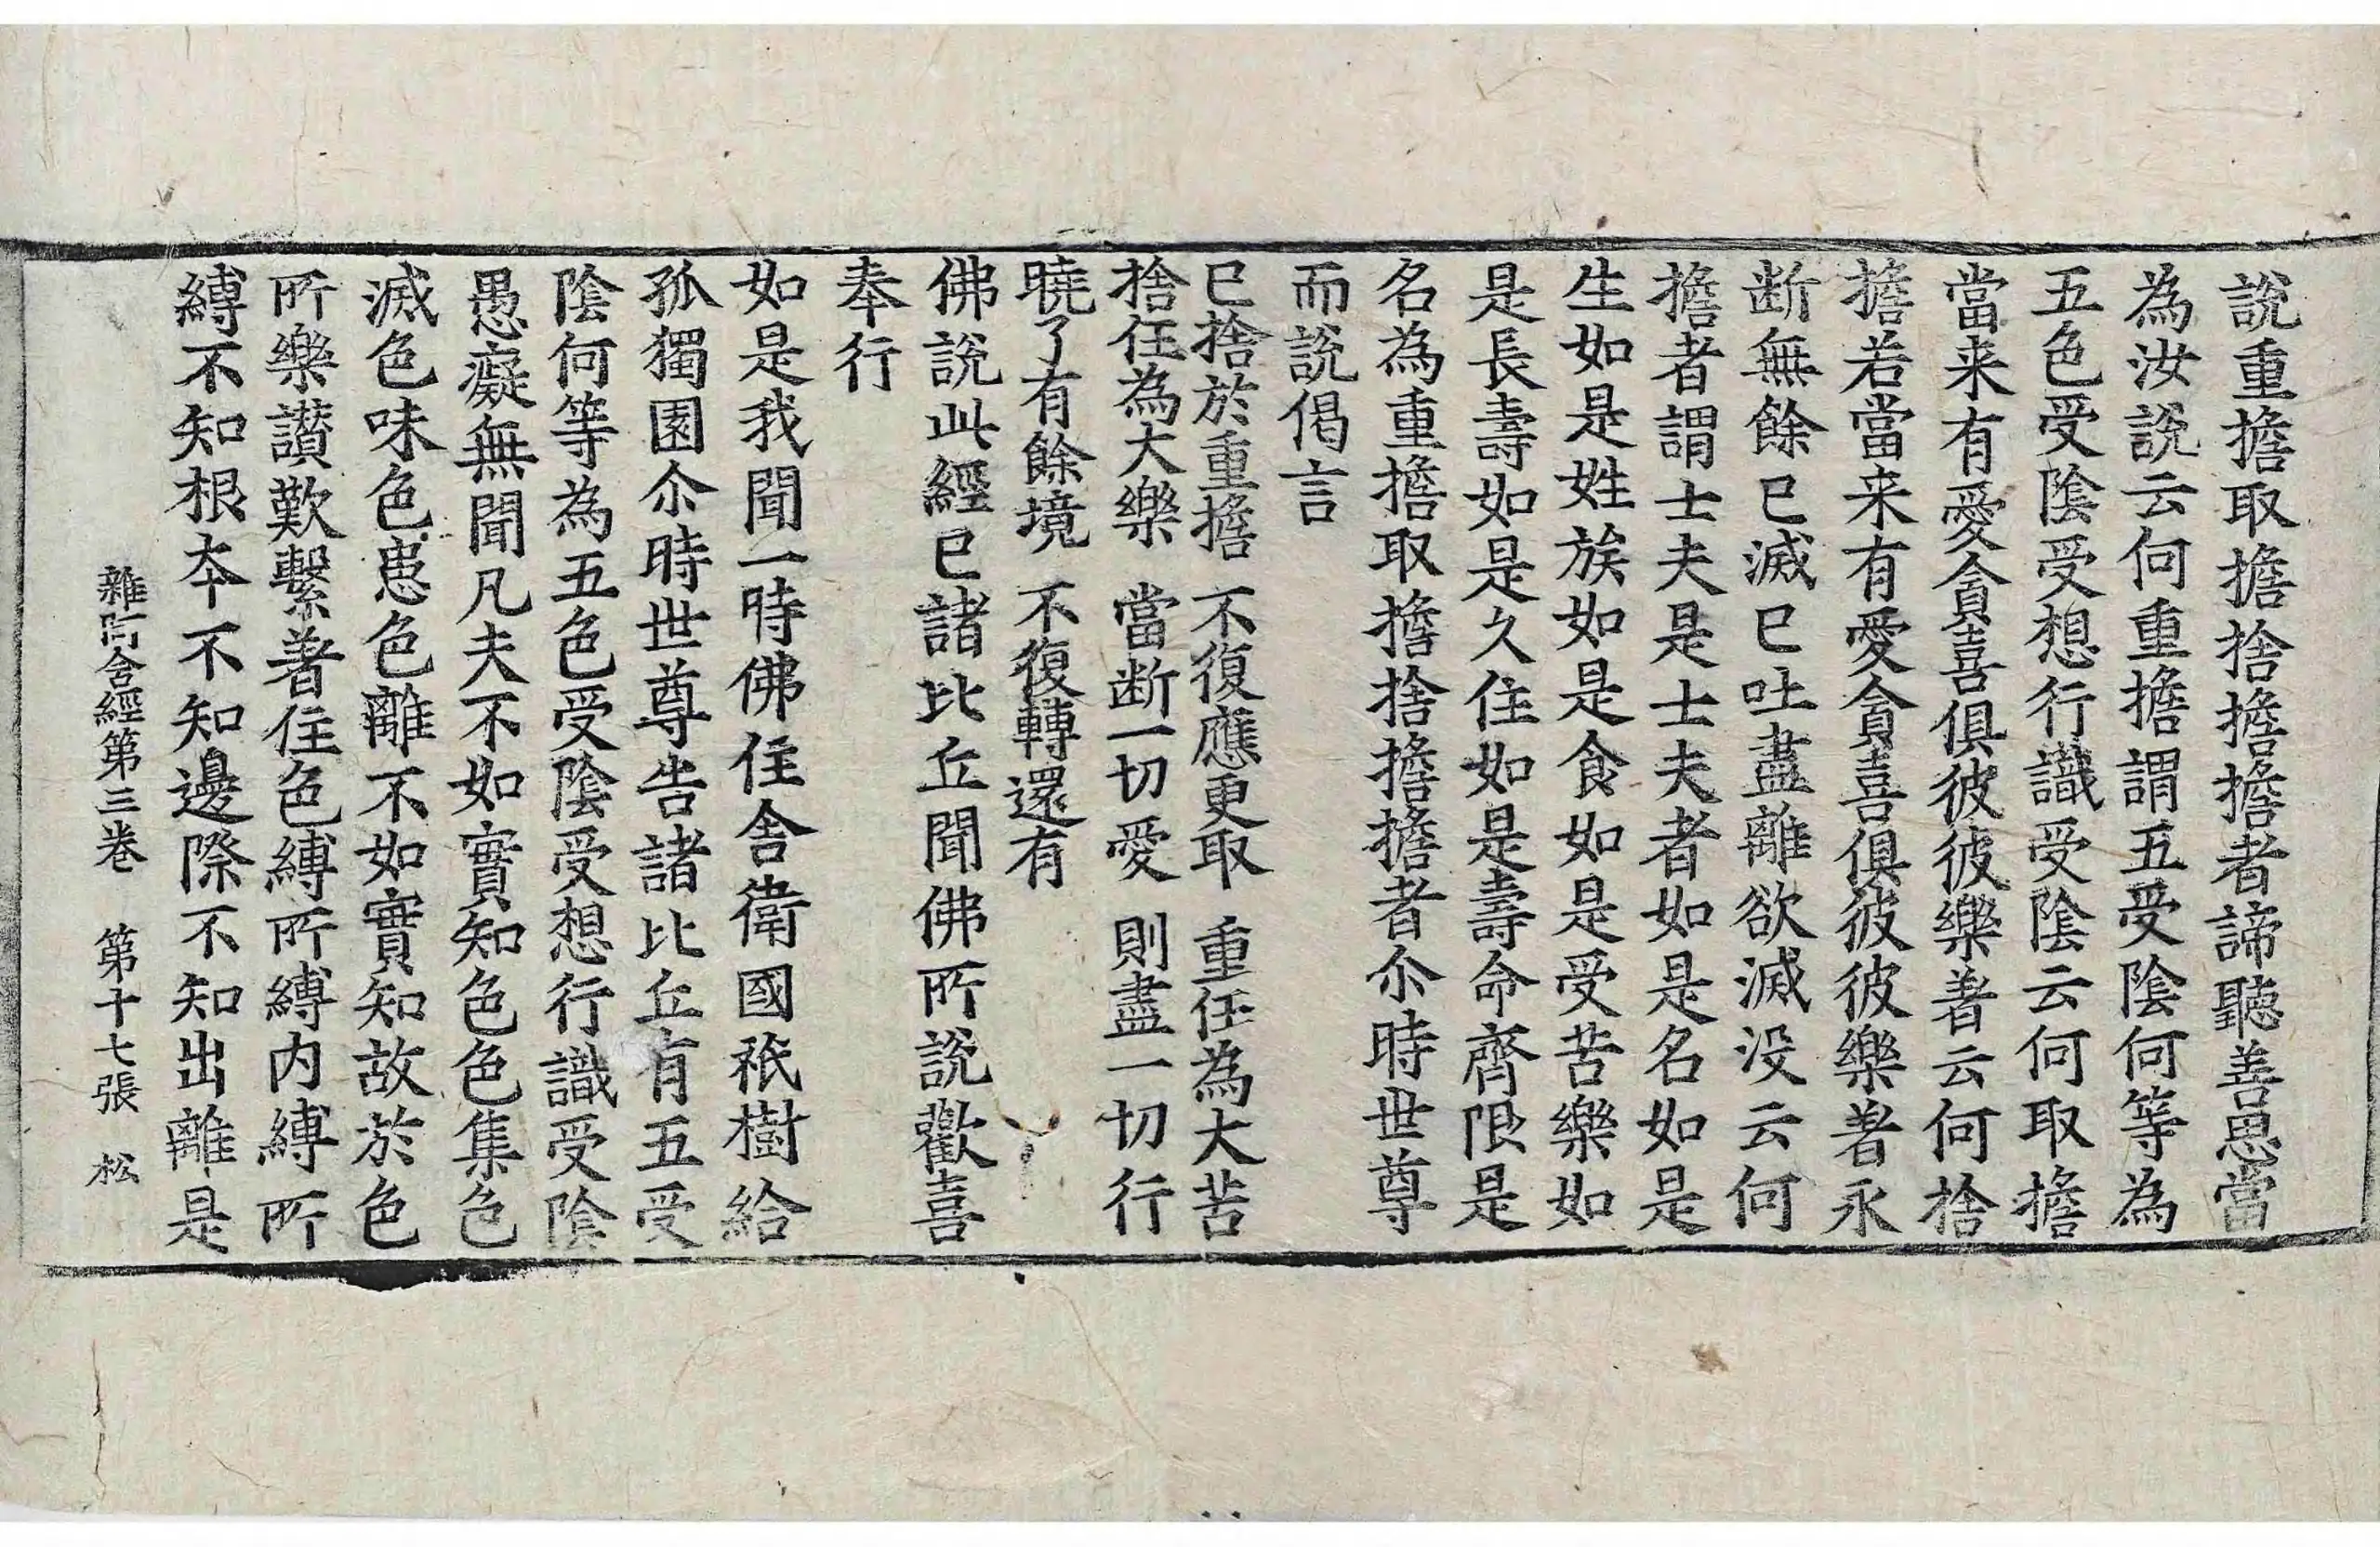 說重擔取擔捨擔擔者諦聽善思當
為汝說云何重擔謂五受陰何等為
五色受陰受想行識受陰云何取擔
當来有愛貪喜俱彼彼樂著云何捨
擔若當来有愛貪喜俱彼彼樂著永
断無餘已滅已吐盡離欲滅没云何
擔者謂士夫是士夫者如是名如是
生如是姓族如是食如是受苦樂如
是長壽如是久住如是壽命齊限是
名為重擔取擔捨擔擔者尒時世尊
而說偈言
已捨於重擔 不復應更取 重任為大苦
捨任為大樂 當断一切愛 則盡一切行
曉了有餘境 不復轉還有
佛說此經已諸比丘聞佛所說歡喜
奉行
如是我聞一時佛住舍衛國祇樹給
孤獨園尒時世尊告諸比丘有五受
陰何等為五色受陰受想行識受陰
愚癡無聞凡夫不如實知色色集色
滅色味色患色離不如實知故於色
所樂讃歎繫著住色縛所縛内縛所
縛不知根夲不知邊際不知出離是
雜阿含經第三卷 第十七張 松